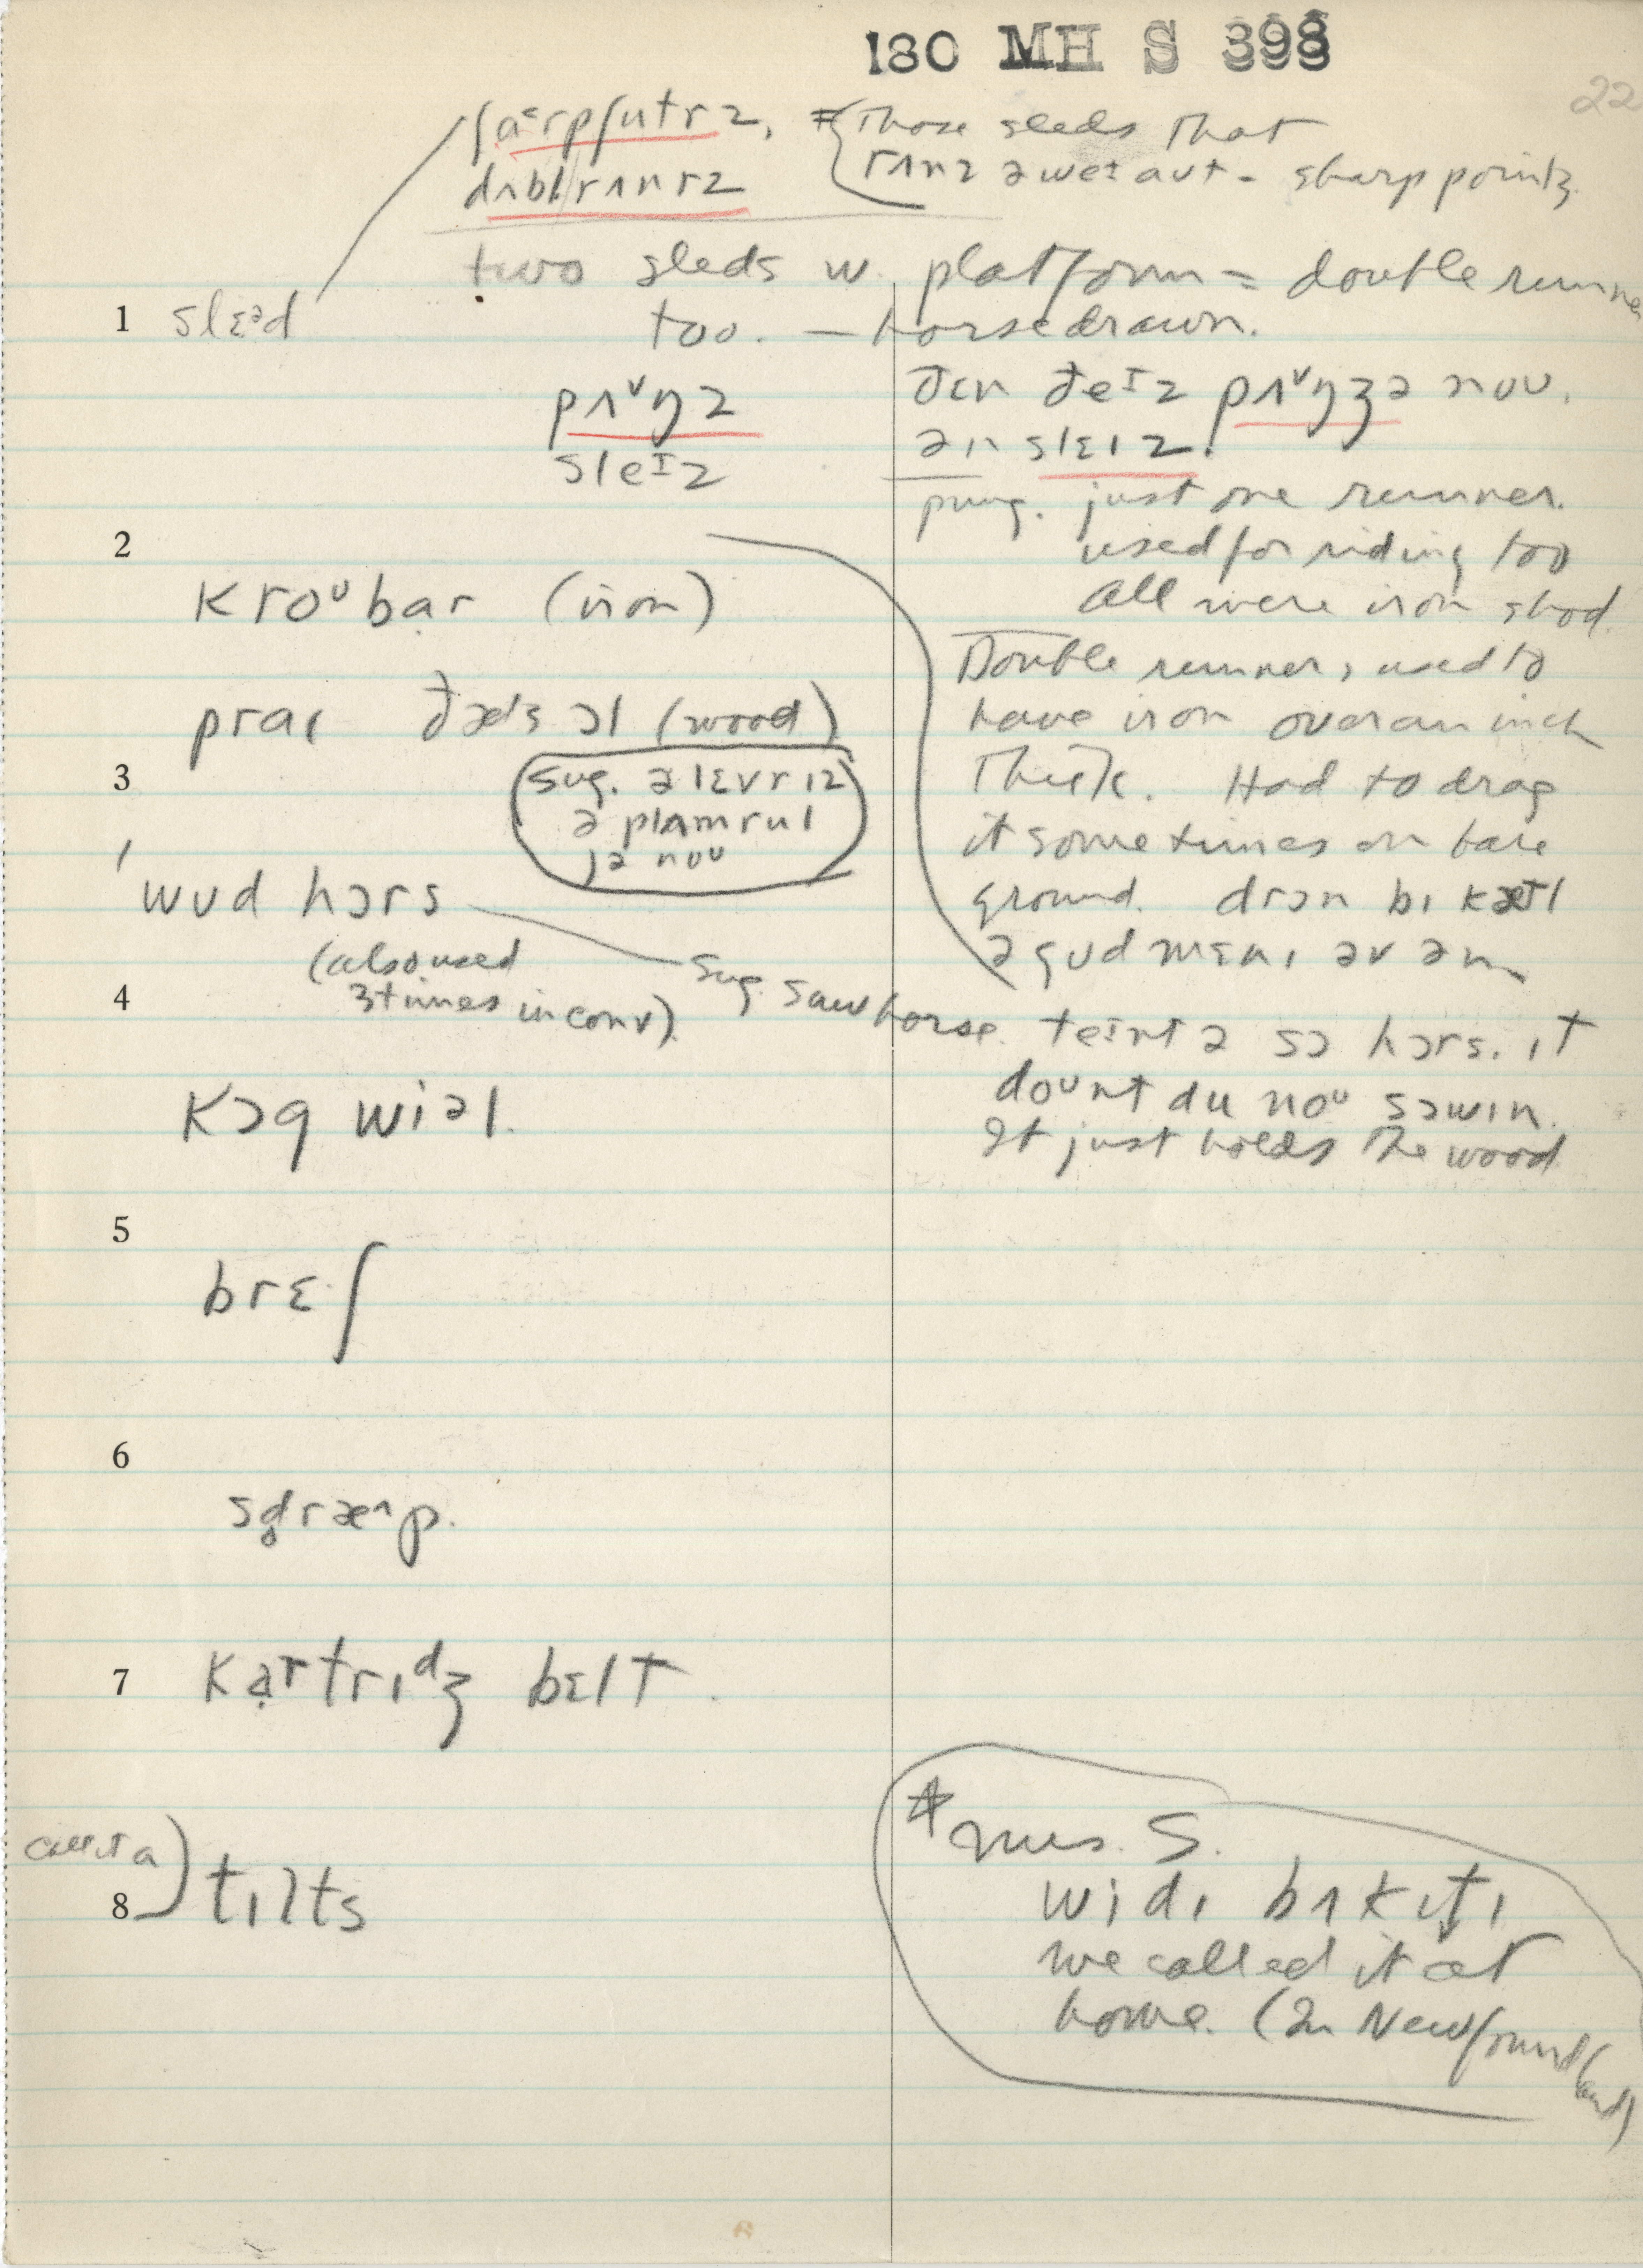 180 MH S 398
22
ʃaᵋrpʃutrz, ≠ Those sleds that
dʌbl/rʌnrz rʌnz əweɪ aut - sharp points.
two sleds w. platform = double runner
1 slɛᵊd too. — horsedrawn.
pʌᵛŋz
sleᴵz
ðɛn ðeᴵz pʌᵛŋʒə nou.
ən slɛɪz.
pung. just one runner.
used for riding too
all were iron shod.
2
kroᵘbar (iron)
Double runners used to
have iron over an inch
thick. Had to drag
it sometimes on bare
ground. drɔn bɪ kætl
ə gud mɛnɪ əv əm
praɪ ðæts ɔl (wood)
3
sug. ə lɛvr ɪz
ə plamrul
jə nou
'wud hɔrs
(also used
3 times in conv)
sug. sawhorse. teɪnt ə sɔ hɔrs. ɪt
dount du noᵘ sɔwɪn.
It just holds the wood
4
kɔg wiəl.
5
brɛʃ
6
sd̥ræ^p.
7 kartrɪᵈʒ bɛlt.
call it a) tɪlts
8
* Mrs. S.
widɪ bʌkɪtɪ
we called it at
home. (In Newfoundland)